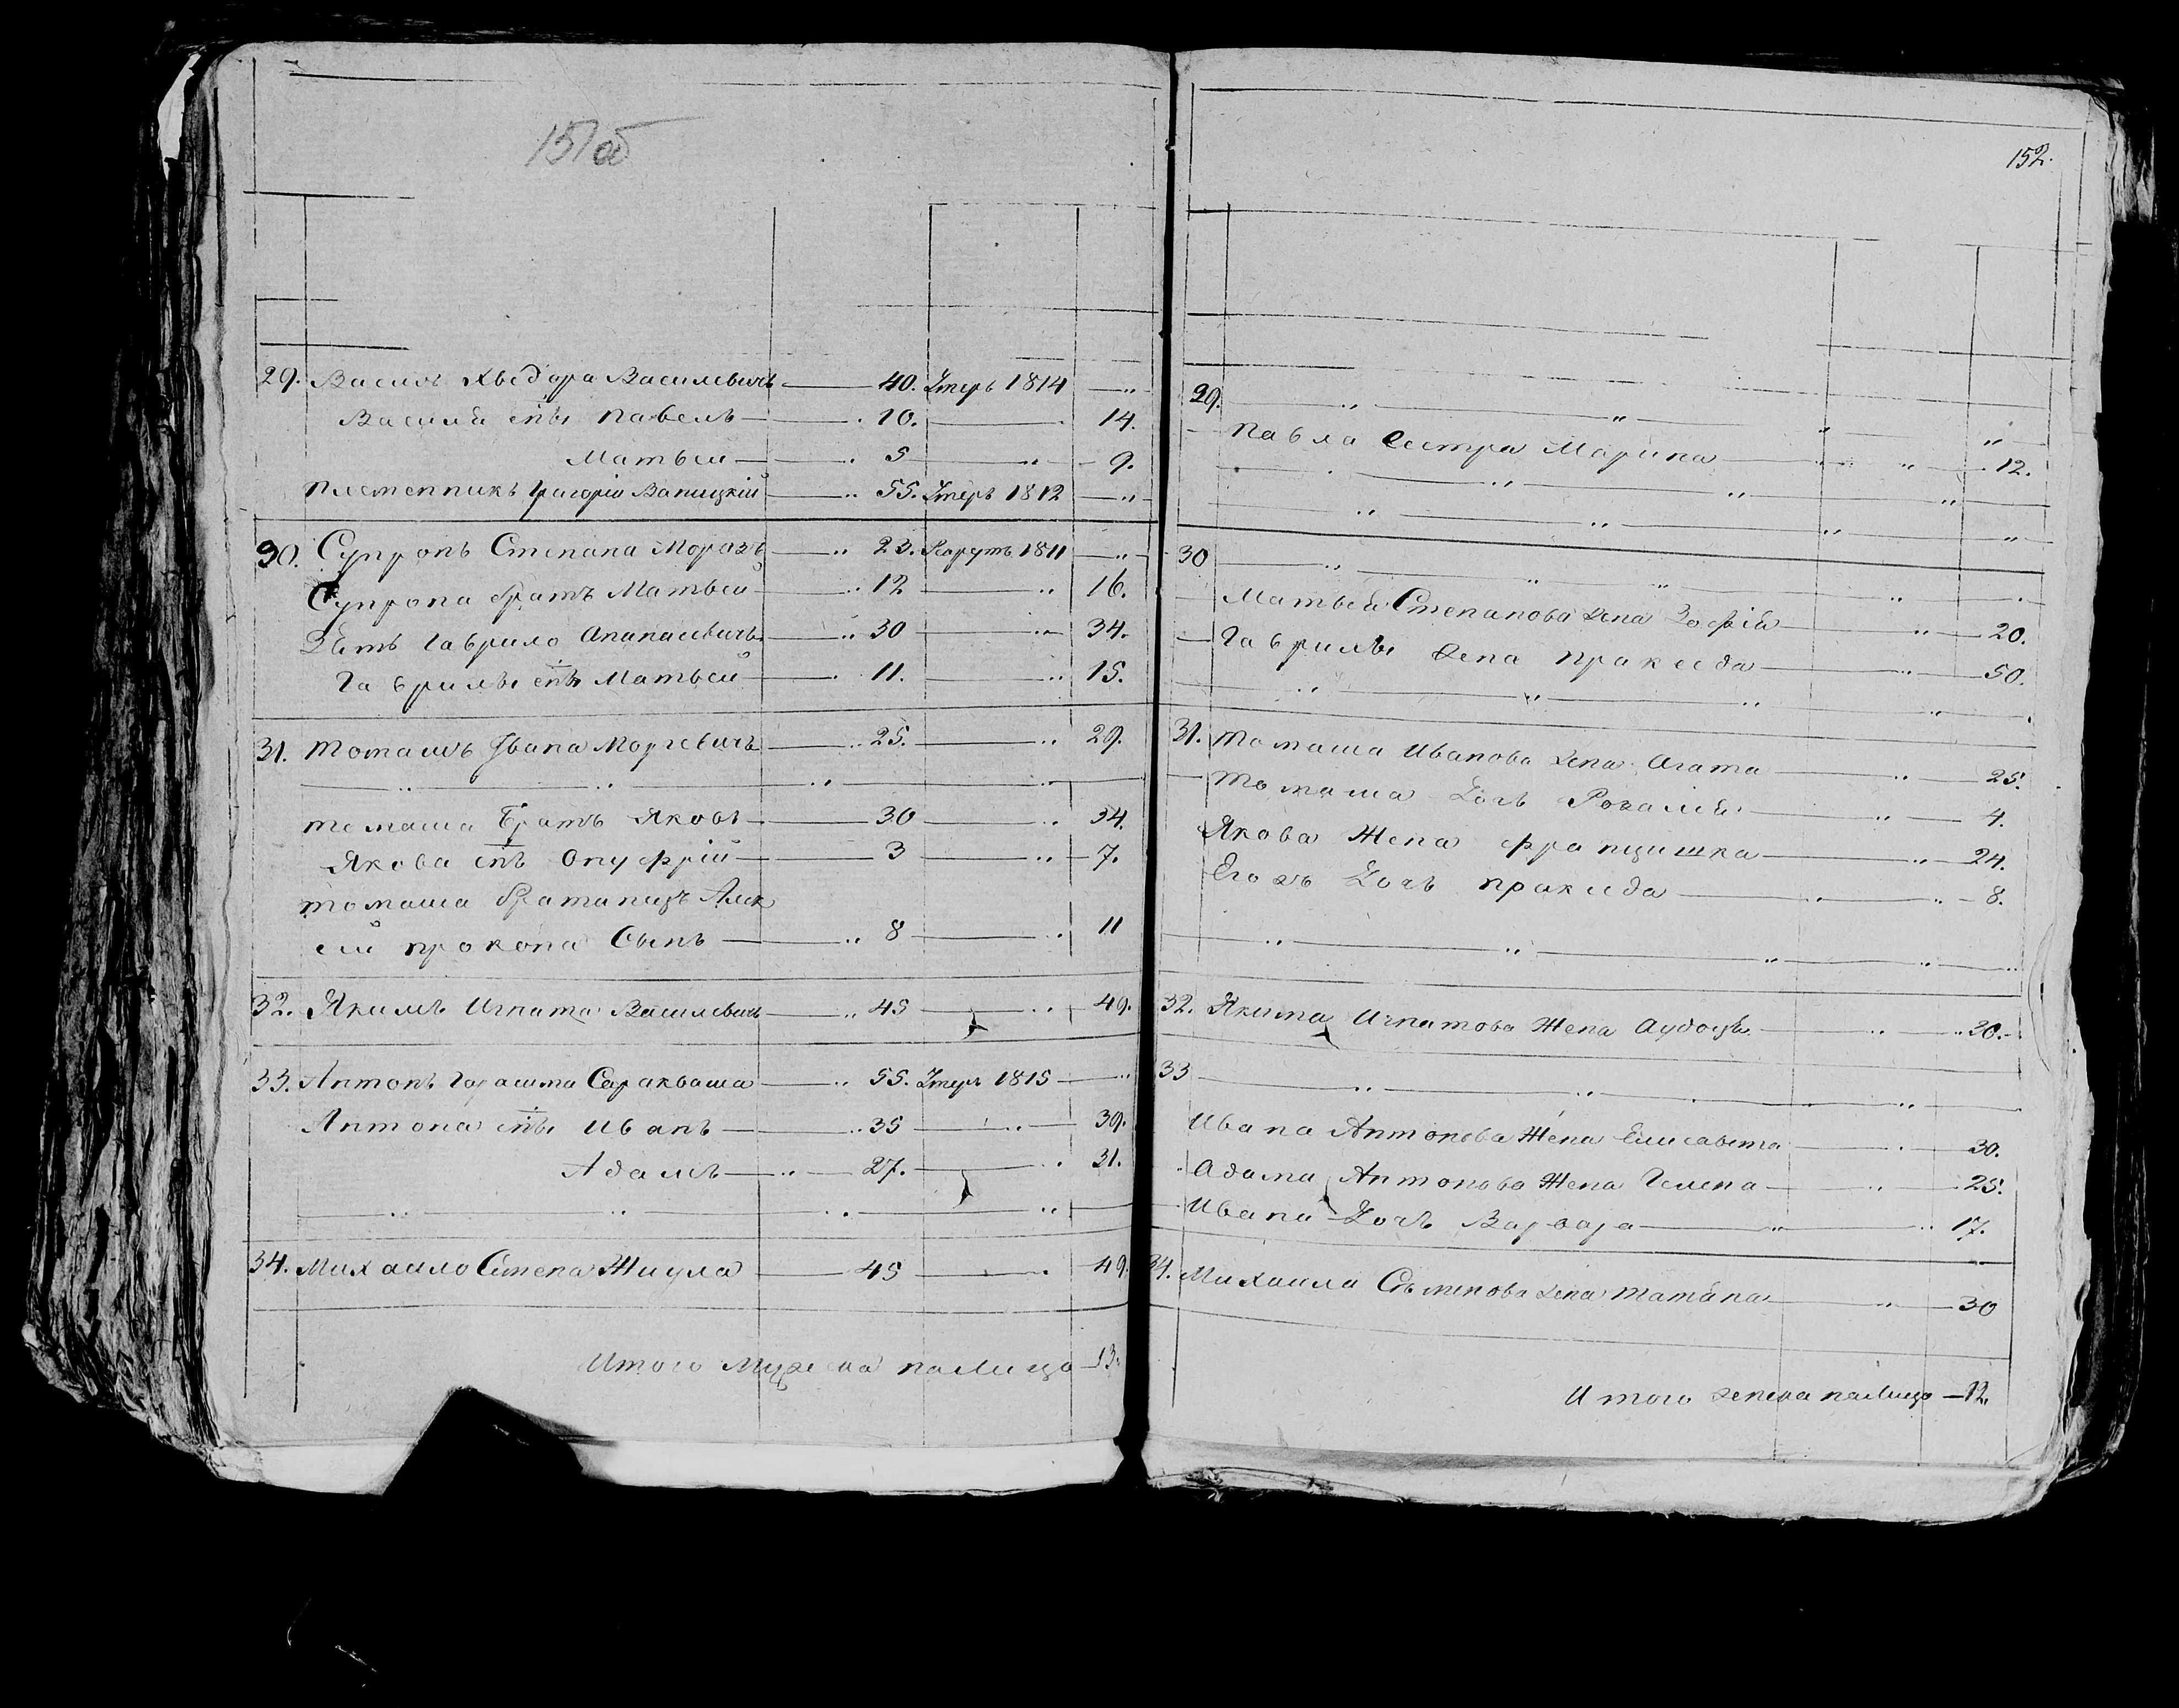 151об
29. Василь Хведора Василевичъ — 40. Умеръ 1814 — „
Василя сны Павелъ — 10. — 14.
Матвей — 5 — „ — 9.
Племенникъ Григорій Ваницкій — „ 55. Умеръ 1812 — „
30. Супронъ Степана Морозъ — „ 23. Рекрутъ 1811 — „
Супрона братъ Матвей — „ 12 — „ 16.
Зять Гаврило Апанасевичъ — „ 30 — „ 34.
Гаврилы снъ Матвей — 11. — „ 15.
31. Томашъ Ивана Моргевичъ — „ 25. — „ 29.
Томаша Братъ Яковъ — 30 — „ 34.
Якова снъ Онуфрій — 3 — „ — 7.
Томаша братаницъ Алек
ей Прокопа Сынъ — „ 8 — 11
32. Якимъ Игната Василевичъ — „ 45 — „ 49.
33. Антонъ Гарашма Саракваша — „ 55. Умеръ 1815 — „
Антона сны Иванъ — „ 35 — „ — 39.
Адамъ — „ — 27. — „ 31.
34. Михайло Семена Жигула — 45 — „ 49.
Итого мужеска налицо — 13.
152.
29. — „ — „ — „ — „
Павла Сестра Марина — „ — 12.
30 — „ — „ — „ — „
Матвея Степанова жена Зофія — „ — 20.
Гаврилы жена Пракседа — „ — 50.
31. Томаша Иванова жена Агата — „ — 25.
Томаша Дочь Розалія — „ — 4.
Якова Жена Францишка — „ — 24.
Егожъ Дочь Пракседа — „ — 8.
32. Якима Игнатова Жена Аудоця — „ — „ 30.
33 — „ — „ — „
Ивана Антонова Жена Елисавета — 30.
Адама Антонова Жена Гелена — „ — 25.
Ивана Дочь Варвара — „ — „ 17.
34. Михаила Сѣменова жена Татяна — „ — 30
Итого женска налицо — 12.